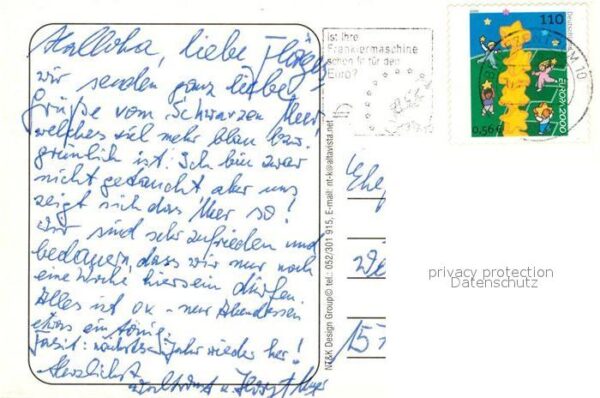 Halloha, liebe
wir senden ganz liebe
Grüße vom Schwarzen Meer,
welches viel mehr blau bzw.
grünlich ist. Ich bin zwar
nicht getaucht aber uns
zeigt sich das Meer so!
Wir sind sehr zufrieden und
bedauern, dass wir nur noch
eine Woche hiersein dürfen.
Alles ist ok - nur Abendessen
etwas eintönig.
Fazit: nächstes Jahr wieder her!
Herzlichst
Waltraut u. Horst
NT&K Design Group© tel.: 052/301 915, E-mail: nt-k@altavista.net
Ist Ihre
Frankiermaschine
schon fit für den
Euro?
110
Deutschland
EUROPA 2000
0,56€
M 10
Ehep
157
privacy protection
Datenschutz